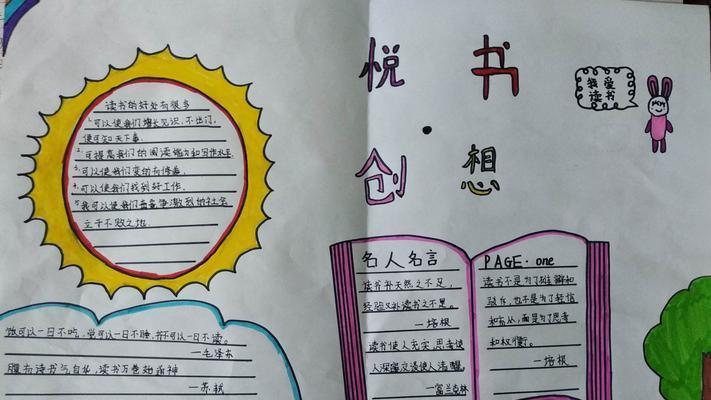 悦 书
·
创 想
我爱
读书
读书的好处有很多
1.可以使我们增长见识,不出门,
便可知天下事.
2.可提高我们的阅读能力和写作水平.
3.可以使我们变的有修养.
4.可以使我们找到好工作.
5.我可以使我们在竞争激烈的社会
立于不败之地.
饭可以一日不吃,觉可以一日不睡,书不可以一日不读。
—毛泽东
腹有诗书气自华,读书万卷始通神
—苏轼
名人名言
读书补天然之不足,
经验又补读书之不足。
—培根
读书使人充实,思考使
人深邃,交谈使人清醒。
—富兰克林
PAGE·one
读书不是为了雄辩和
驳斥,也不是为了轻信
和盲从,而是为了思考
和权衡。
—培根